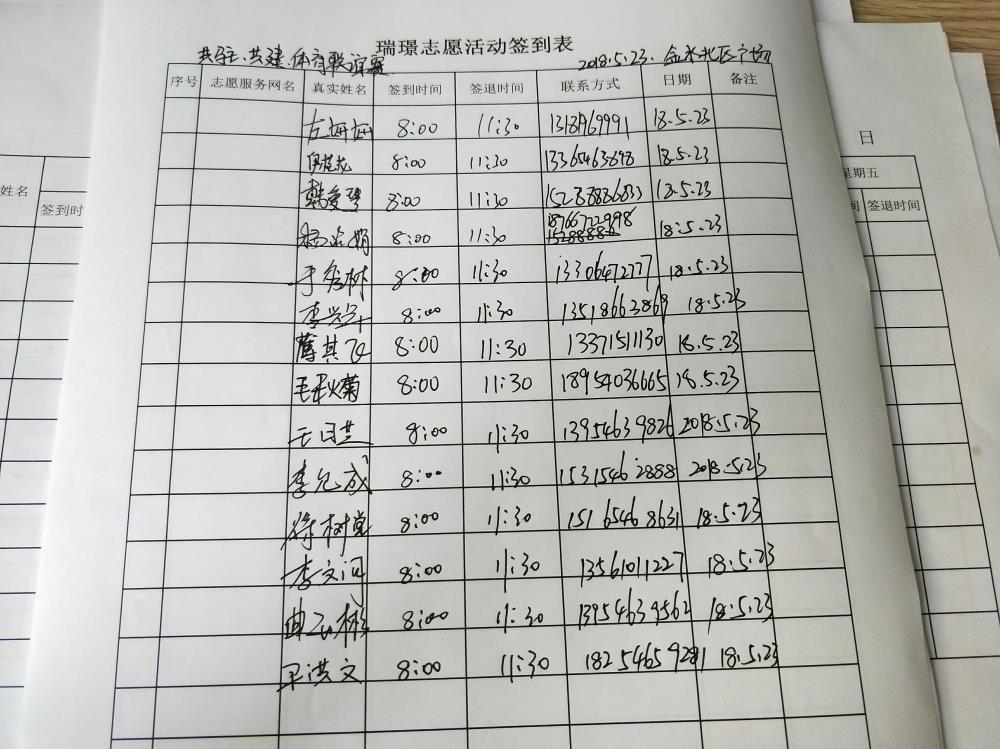 瑞璟志愿活动签到表
共驻、共建、体育联谊赛 2018.5.23. 金水北区广场
序号 志愿服务网名 真实姓名 签到时间 签退时间 联系方式 日期 备注
8:00 11:30 18.5.23
8:00 11:30 18.5.23
韩爱琴 8:00 11:30 18.5.23
8:00 11:30 18766722998 18.5.23
于秀林 8:00 11:30 13306472777 18.5.23
8:00 11:30 18.5.23
薄其飞 8:00 11:30 13371511130 18.5.23
8:00 11:30 18954036665 18.5.23
8:00 11:30 13954639826 2018.5.23
李允成 8:00 11:30 15315462888 2018.5.23
徐树堂 8:00 11:30 15165468631 18.5.23
李文问 8:00 11:30 13561011227 18.5.23
曲玉彬 8:00 11:30 13954639562 18.5.23
王洪文 8:00 11:30 18254659281 18.5.23
姓名
签到时
日
星期五
间 签退时间